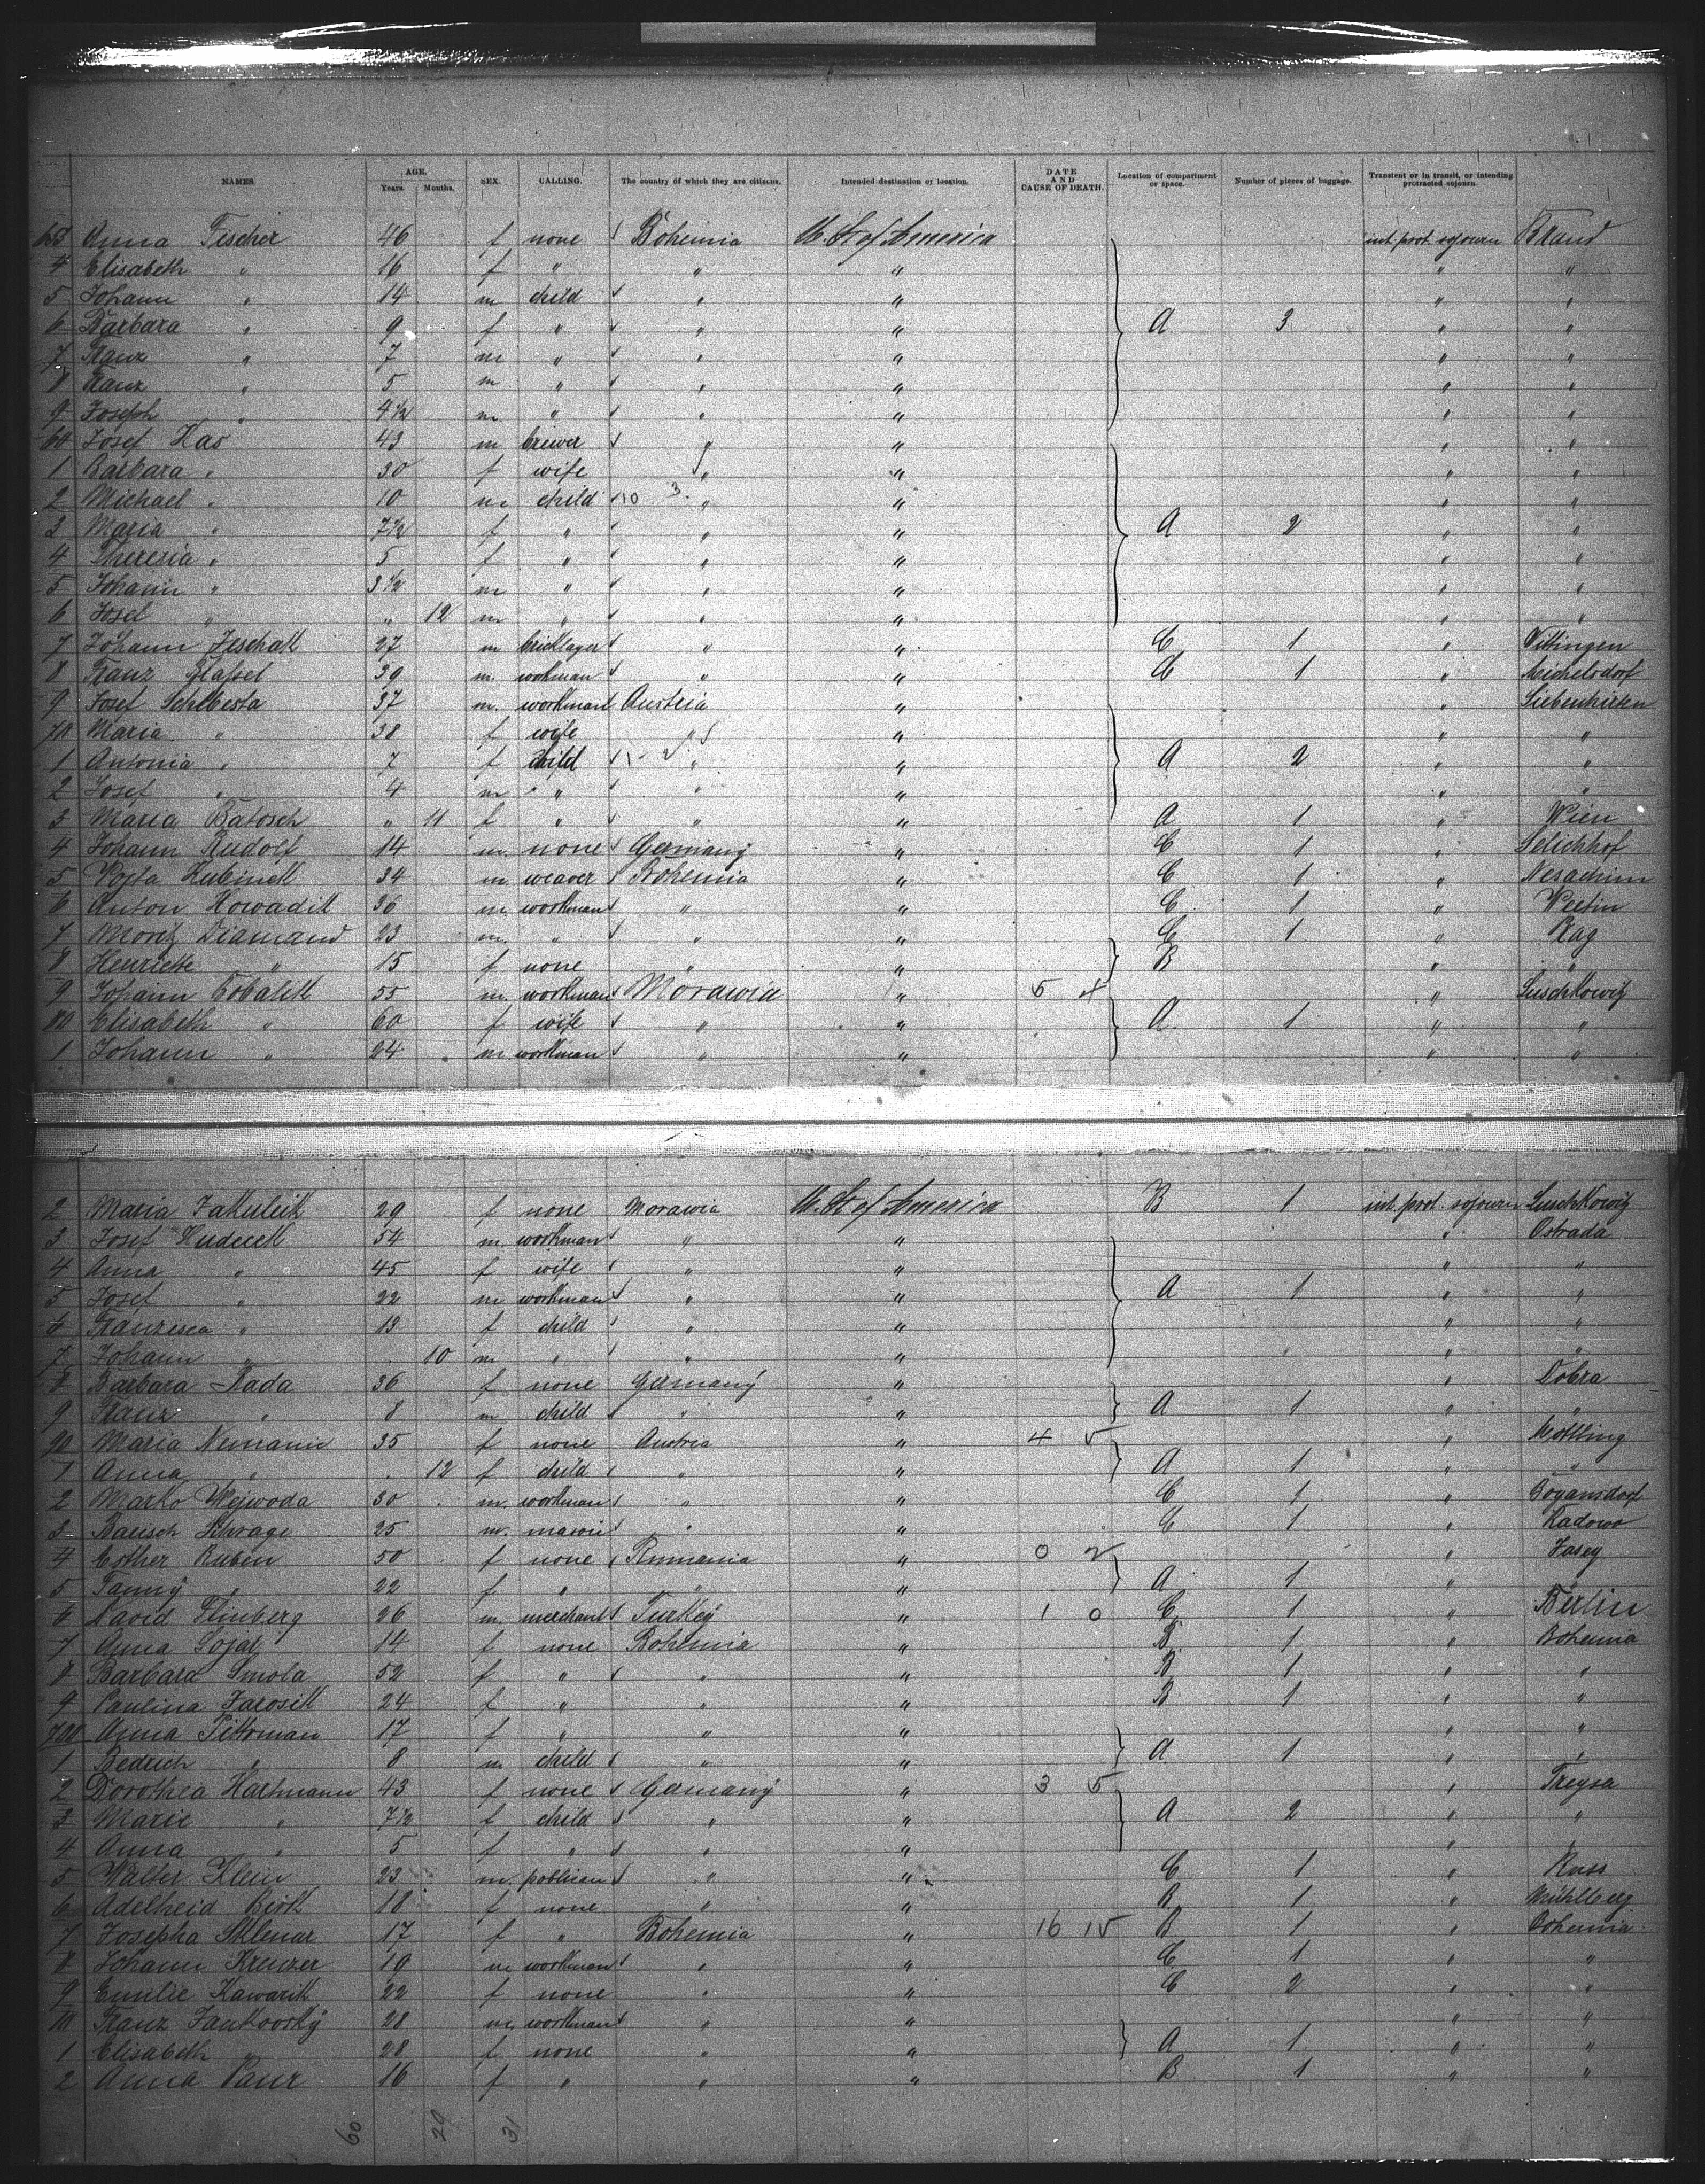 NAMES AGE. Years. Months. SEX. CALLING. The country of which they are citizens. Intended destination or location. DATE AND CAUSE OF DEATH. Location of compartment or space. Number of pieces of baggage. Transient or in transit, or intending protracted sojourn.
653 Anna Fischer 46 f none Bohemia U. St of America int. prot. sojourn Brand
4 Elisabeth " 16 f " " " " "
5 Johann " 14 m child " " " "
6 Barbara " 9 f " " " A 3 " "
7 Franz " 7 m " " " " "
8 Franz " 5 m " " " " "
9 Joseph " 4 1/2 m " " " " "
60 Josef Kas 43 m brewer " " " "
1 Barbara " 30 f wife " " " "
2 Michael " 10 m child 10 3 " " " "
3 Maria " 7 1/2 f " " " A 2 " "
4 Theresia " 5 f " " " " "
5 Johann " 3 1/2 m " " " " "
6 Josef " " 12 m " " " " "
7 Johann Jeschak 27 m bricklayer " " C 1 " Wittingen
8 Franz 39 m. workman " " C 1 " Michelsdorf
9 Josef Schebesta 37 m. workman Austria " " Siebenhirten
70 Maria " 38 f wife " " " "
1 Antonia " 7 f child 1 - 2 " " A 2 " "
2 Josef " 4 m " " " " "
3 Maria Batosch " 11 f " " " A 1 " Wien
4 Johann Rudolf 14 m. none Germany " C 1 " Selichhof
5 Vojta Kubinek 34 m weaver Bohemia " C 1 "
6 Anton Howadik 36 m. workman " " C 1 "
7 Moritz Diamand 23 m. " " " C 1 "
8 Henriette " 15 f none " " B " "
9 Johann 55 m. workman Morawia " 5 4 " Luschkowitz
80 Elisabeth " 60 f wife " " A 1 " "
1 Johann " 24 m workman " " " "
2 Maria 29 f none Morawia U. St of America B 1 int. prot. sojourn Luschkowitz
3 Josef Hudecek 54 m. workman " " " Ostrada
4 Anna " 45 f wife " " " "
5 Josef " 22 m workman " " A 1 " "
6 Franzisca " 13 f child " " " "
7 Johann " . 10 m " " " " "
8 Barbara Rada 36 f none Germany " " Dobra
9 Franz " 8 m child " " A 1 " "
90 Maria Nemanic 35 f none Austria " 4 5 " Möttling
1 Anna " . 12 f child " " A 1 " "
2 Marko Wejwoda 30 m. workman " " C 1 " Bojansdorf
3 Barisch Schrage 25 m. mason " " C 1 " Radowo
4 Esther Ruben 50 f none Rumania " 0 2 " Jasey
5 Fanny " 22 f " " " A 1 " "
6 David Feinberg 26 m. merchant Turkey " 1 0 C 1 " Berlin
7 Anna Sojat 14 f none Bohemia " B 1 " Bohemia
8 Barbara Smola 52 f " " " B 1 " "
9 Paulina Jarosik 24 f " " " B 1 " "
700 Anna Pittoman 17 f " " " " "
1 Bedrich " 8 m child " " A 1 " "
2 Dorothea Hartmann 43 f none Germany " 3 5 " Treysa
3 Marie " 7 1/2 f child " " A 2 " "
4 Anna " 5 f " " " " "
5 Walter Klein 23 m. publican " " C 1 " Russ
6 Adelheid Birk 18 f none " " B 1 " Mühlberg
7 Josepha Sklenar 17 f " Bohemia " 16 15 B 1 " Bohemia
8 Johann Kreuzer 19 m workman " " C 1 " "
9 Emilie Kawarik 22 f none " " C 2 " "
10 Franz Jankovsky 28 m. workman " " " "
1 Elisabeth " 28 f none " " A 1 " "
2 Anna Paur 16 f " " " B 1 " "
60 29 31